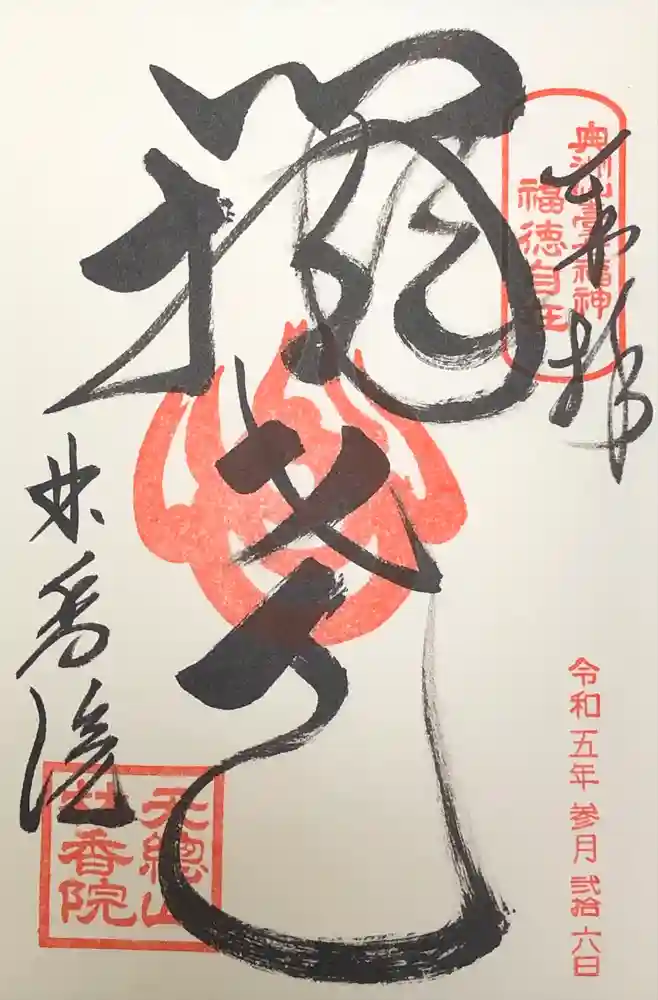 奉拝
奥州仙臺七福神
福徳自在
令和五年 参月 弐拾六日
林香院
天總山
林香院